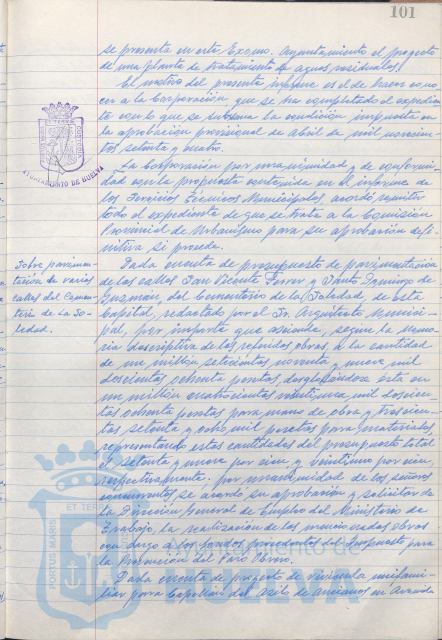 101
se presenta en este Excmo. Ayuntamiento el proyecto
de una planta de tratamiento de aguas residuales.
El motivo del presente informe es el de hacer cono-
cer a la Corporación que se ha completado el expedien-
te con lo que se la condición impuesta en
la aprobación provisional de Abril de mil novecien-
tos setenta y cuatro.
La Corporación por unanimidad y de conformi-
dad con la propuesta contenida en el informe de
los Servicios Técnicos Municipales, acordó remitir
todo el expediente de que se trata a la Comisión
Provincial de Urbanismo para su aprobación defi-
nitiva si procede.
Sobre pavimen-
tación de varias
calles del Cemen-
terio de la So-
ledad.
Dada cuenta de presupuesto de pavimentación
de las calles San Vicente Ferrer y Santo Domingo de
Guzmán, del Cementerio de la Soledad, de esta
Capital, redactado por el Sr. Arquitecto Munici-
pal, por importe que asciende, según la Memo-
ria descriptiva de las referidas obras, a la cantidad
de un millón setecientas noventa y nueve mil
doscientas ochenta pesetas, desglosándose ésta en
un millón cuatrocientas veintiuna mil doscien-
tas ochenta pesetas para mano de obra y trescien-
tas setenta y ocho mil pesetas para materiales,
representando estas cantidades del presupuesto total
el setenta y nueve por cien, y veintiuno por cien,
respectivamente, por unanimidad de los señores
concurrentes se acordó su aprobación y solicitar de
la Dirección General de Empleo del Ministerio de
Trabajo, la realización de las mencionadas obras
con cargo a los fondos procedentes del Impuesto para
la Prevención del Paro Obrero.
Dada cuenta de proyecto de vivienda unifami-
liar para Capellán del Asilo de Ancianos en Avenida
AYUNTAMIENTO DE HUELVA
PORTUS MARIS ET TERRAE
Ayuntamiento de
HUELVA